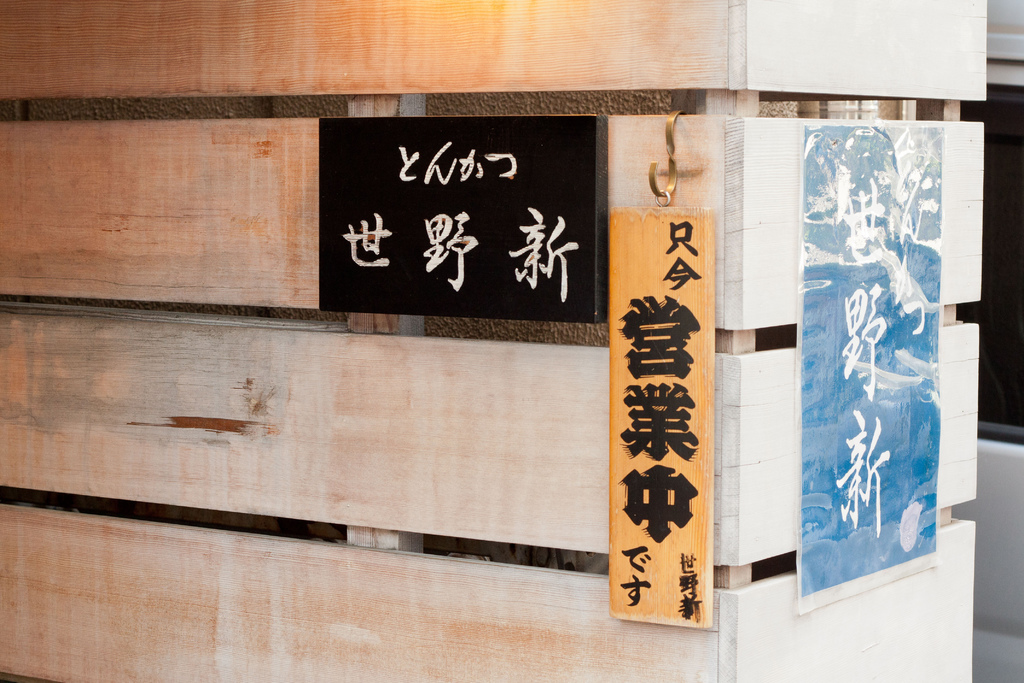 とんかつ
世野新
只今
営業中
です
世野新
とんかつ
世野新